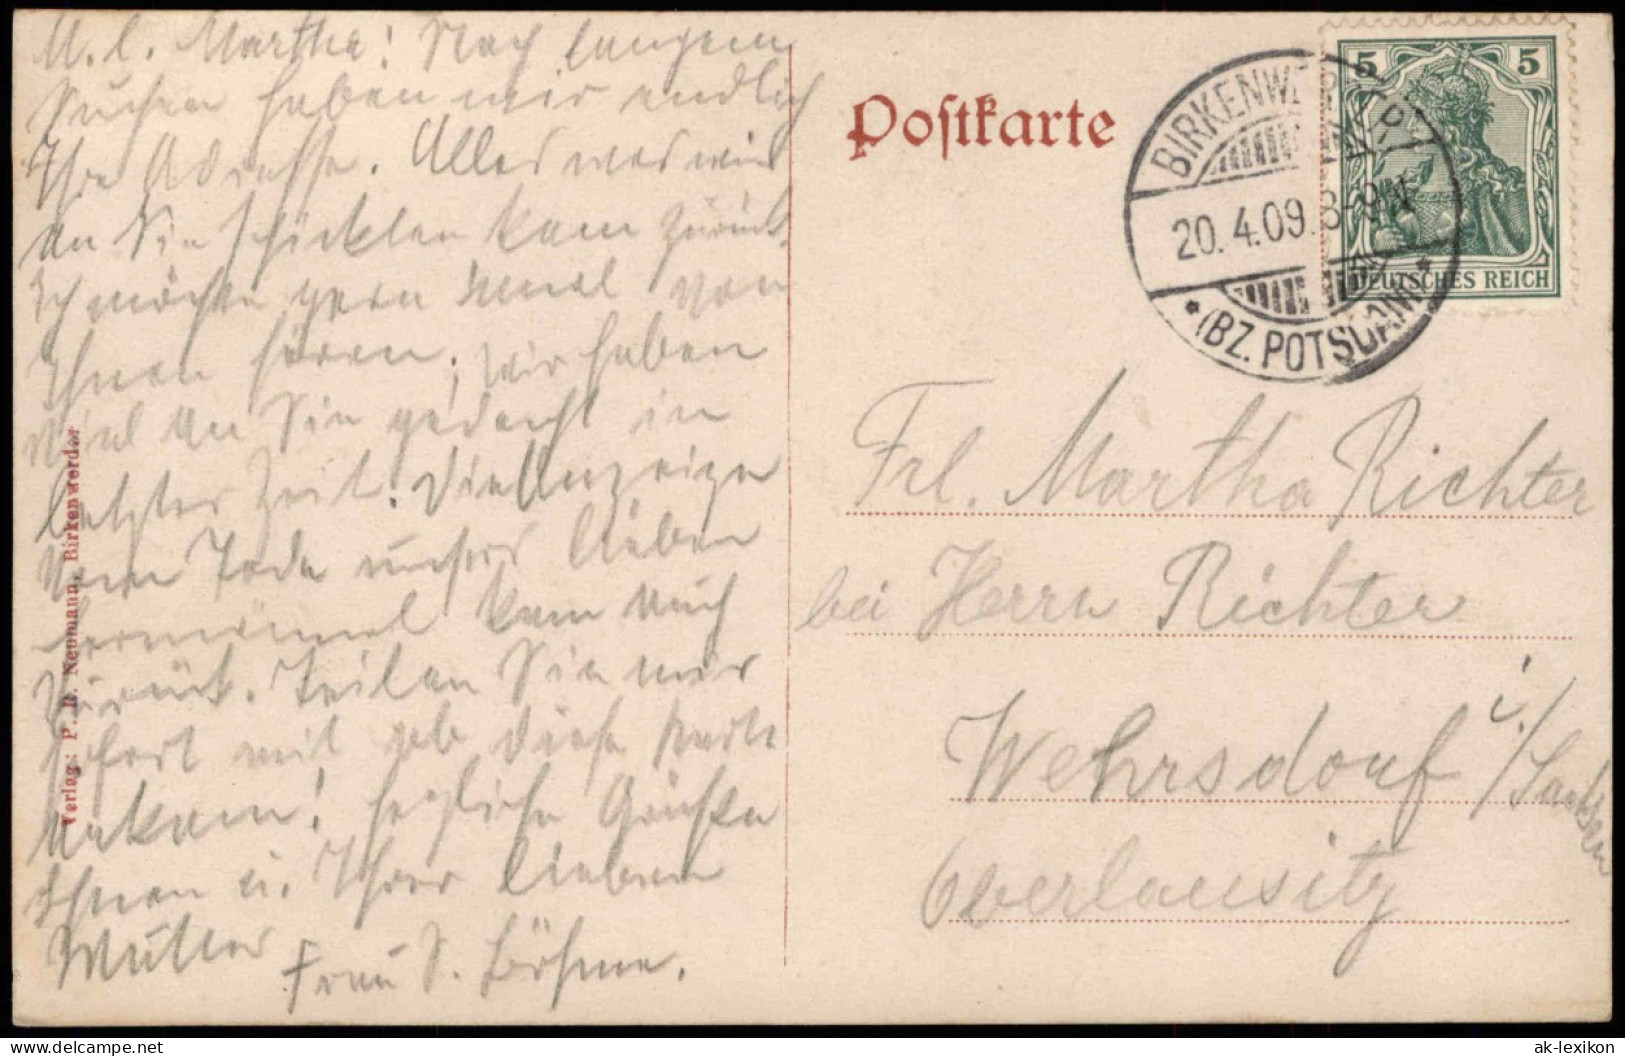 M. l. Martha! Nach langem
Suchen haben wir endlich
Ihre Adresse. Alles was wir
an Sie schickten kam zurück.
Ich möchte gern einmal von
Ihnen hören, wir haben
viel an Sie gedacht in
letzter Zeit. Die Anzeige
vom Tode unsres lieben
kam auch
zurück. Teilen Sie mir
sofort mit ob diese Karte
ankam! Herzliche Grüße
Ihnen u. Ihrer lieben
Mutter Frau S. Böhme.
Verlag: P. R. Neumann, Birkenwerder
Postkarte
BIRKENWERDER
20.4.09. 8-9N
* (BZ. POTSDAM) *
5 5
DEUTSCHES REICH
Frl. Martha Richter
bei Herrn Richter
Wehrsdorf i/Sachsen
Oberlausitz
© oldthing.net
ak-lexikon